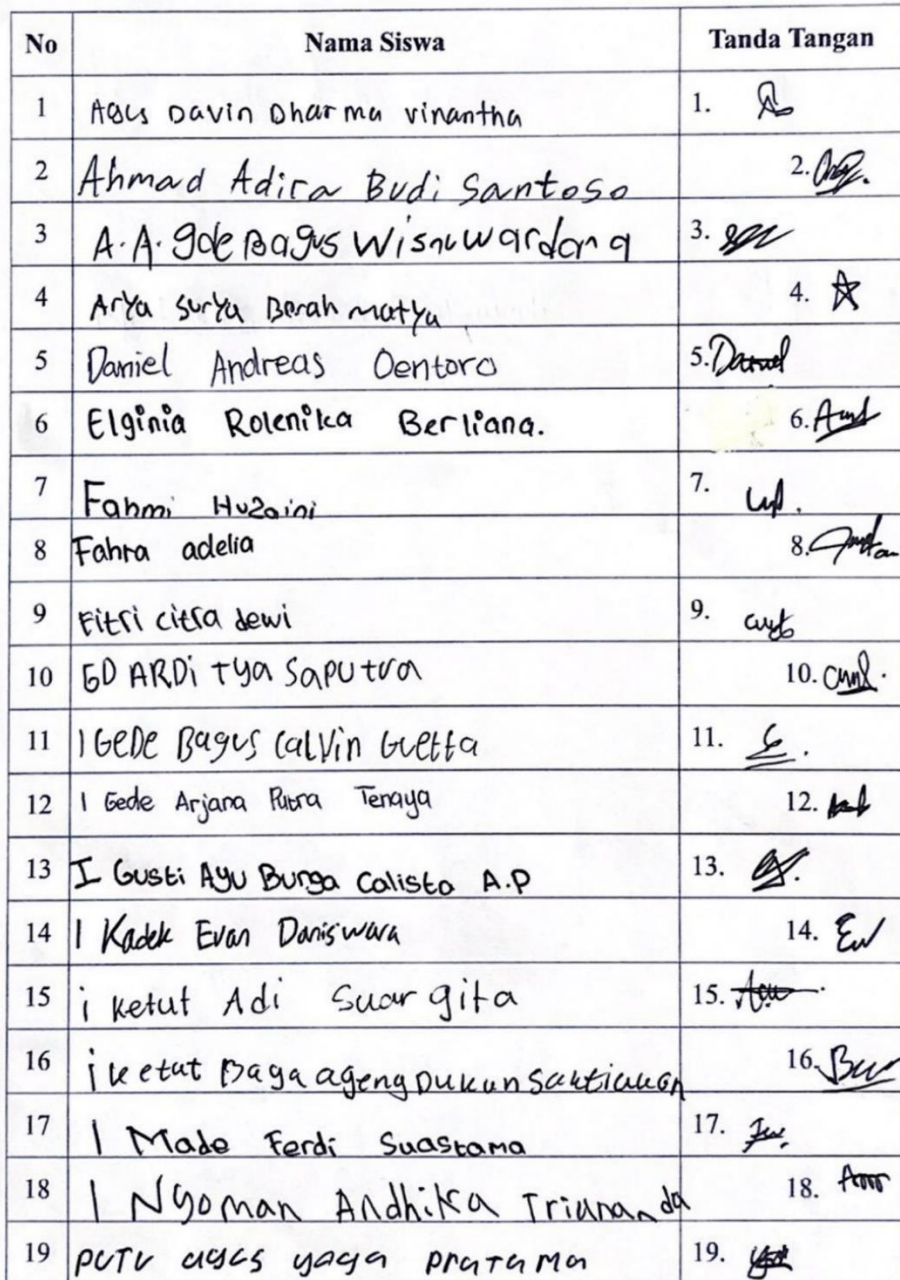 No Nama Siswa Tanda Tangan
1 Agus Davin Dharma vinantha 1.
2 Ahmad Adira Budi Santoso 2.
3 A.A. gde Bagus Wisnuwardana 3.
4 Arya Surya Berahmatya 4.
5 Daniel Andreas Oentoro 5. Daniel
6 Elginia Rolenika Berliana. 6.
7 Fahmi Huzaini 7.
8 Fahra adelia 8.
9 Fitri citra dewi 9.
10 GD ARDi TYA SAPUTRA 10.
11 I GEDE Bagus Calvin Guetta 11.
12 I Gede Arjana Putra Tenaya 12.
13 I Gusti Ayu Bunga Calista A.P 13.
14 I Kadek Evan Daniswara 14.
15 i ketut Adi Suargita 15.
16 i ketut Baga ageng Dukuh 16.
17 I Made Ferdi Suastama 17.
18 I Nyoman Andhika Triananda 18.
19 PUTU agus yoga pratama 19.